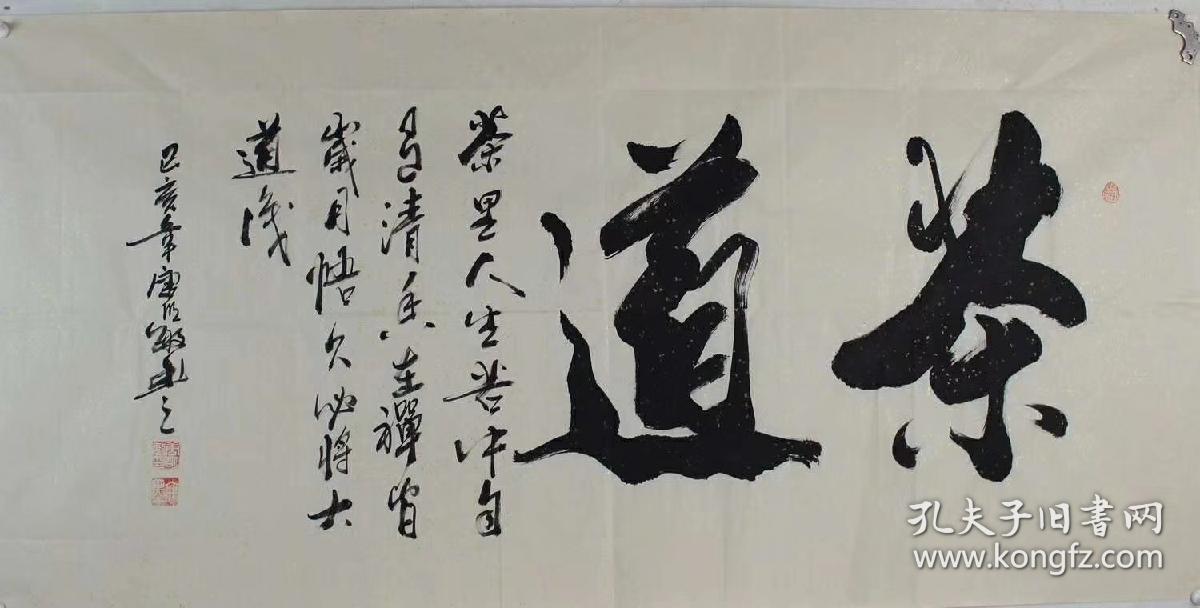 茶道
茶里人生苦中自
有清香在禅宵
歲月悟久必将大
道浅
己亥年康
孔夫子旧书网
www.kongfz.com